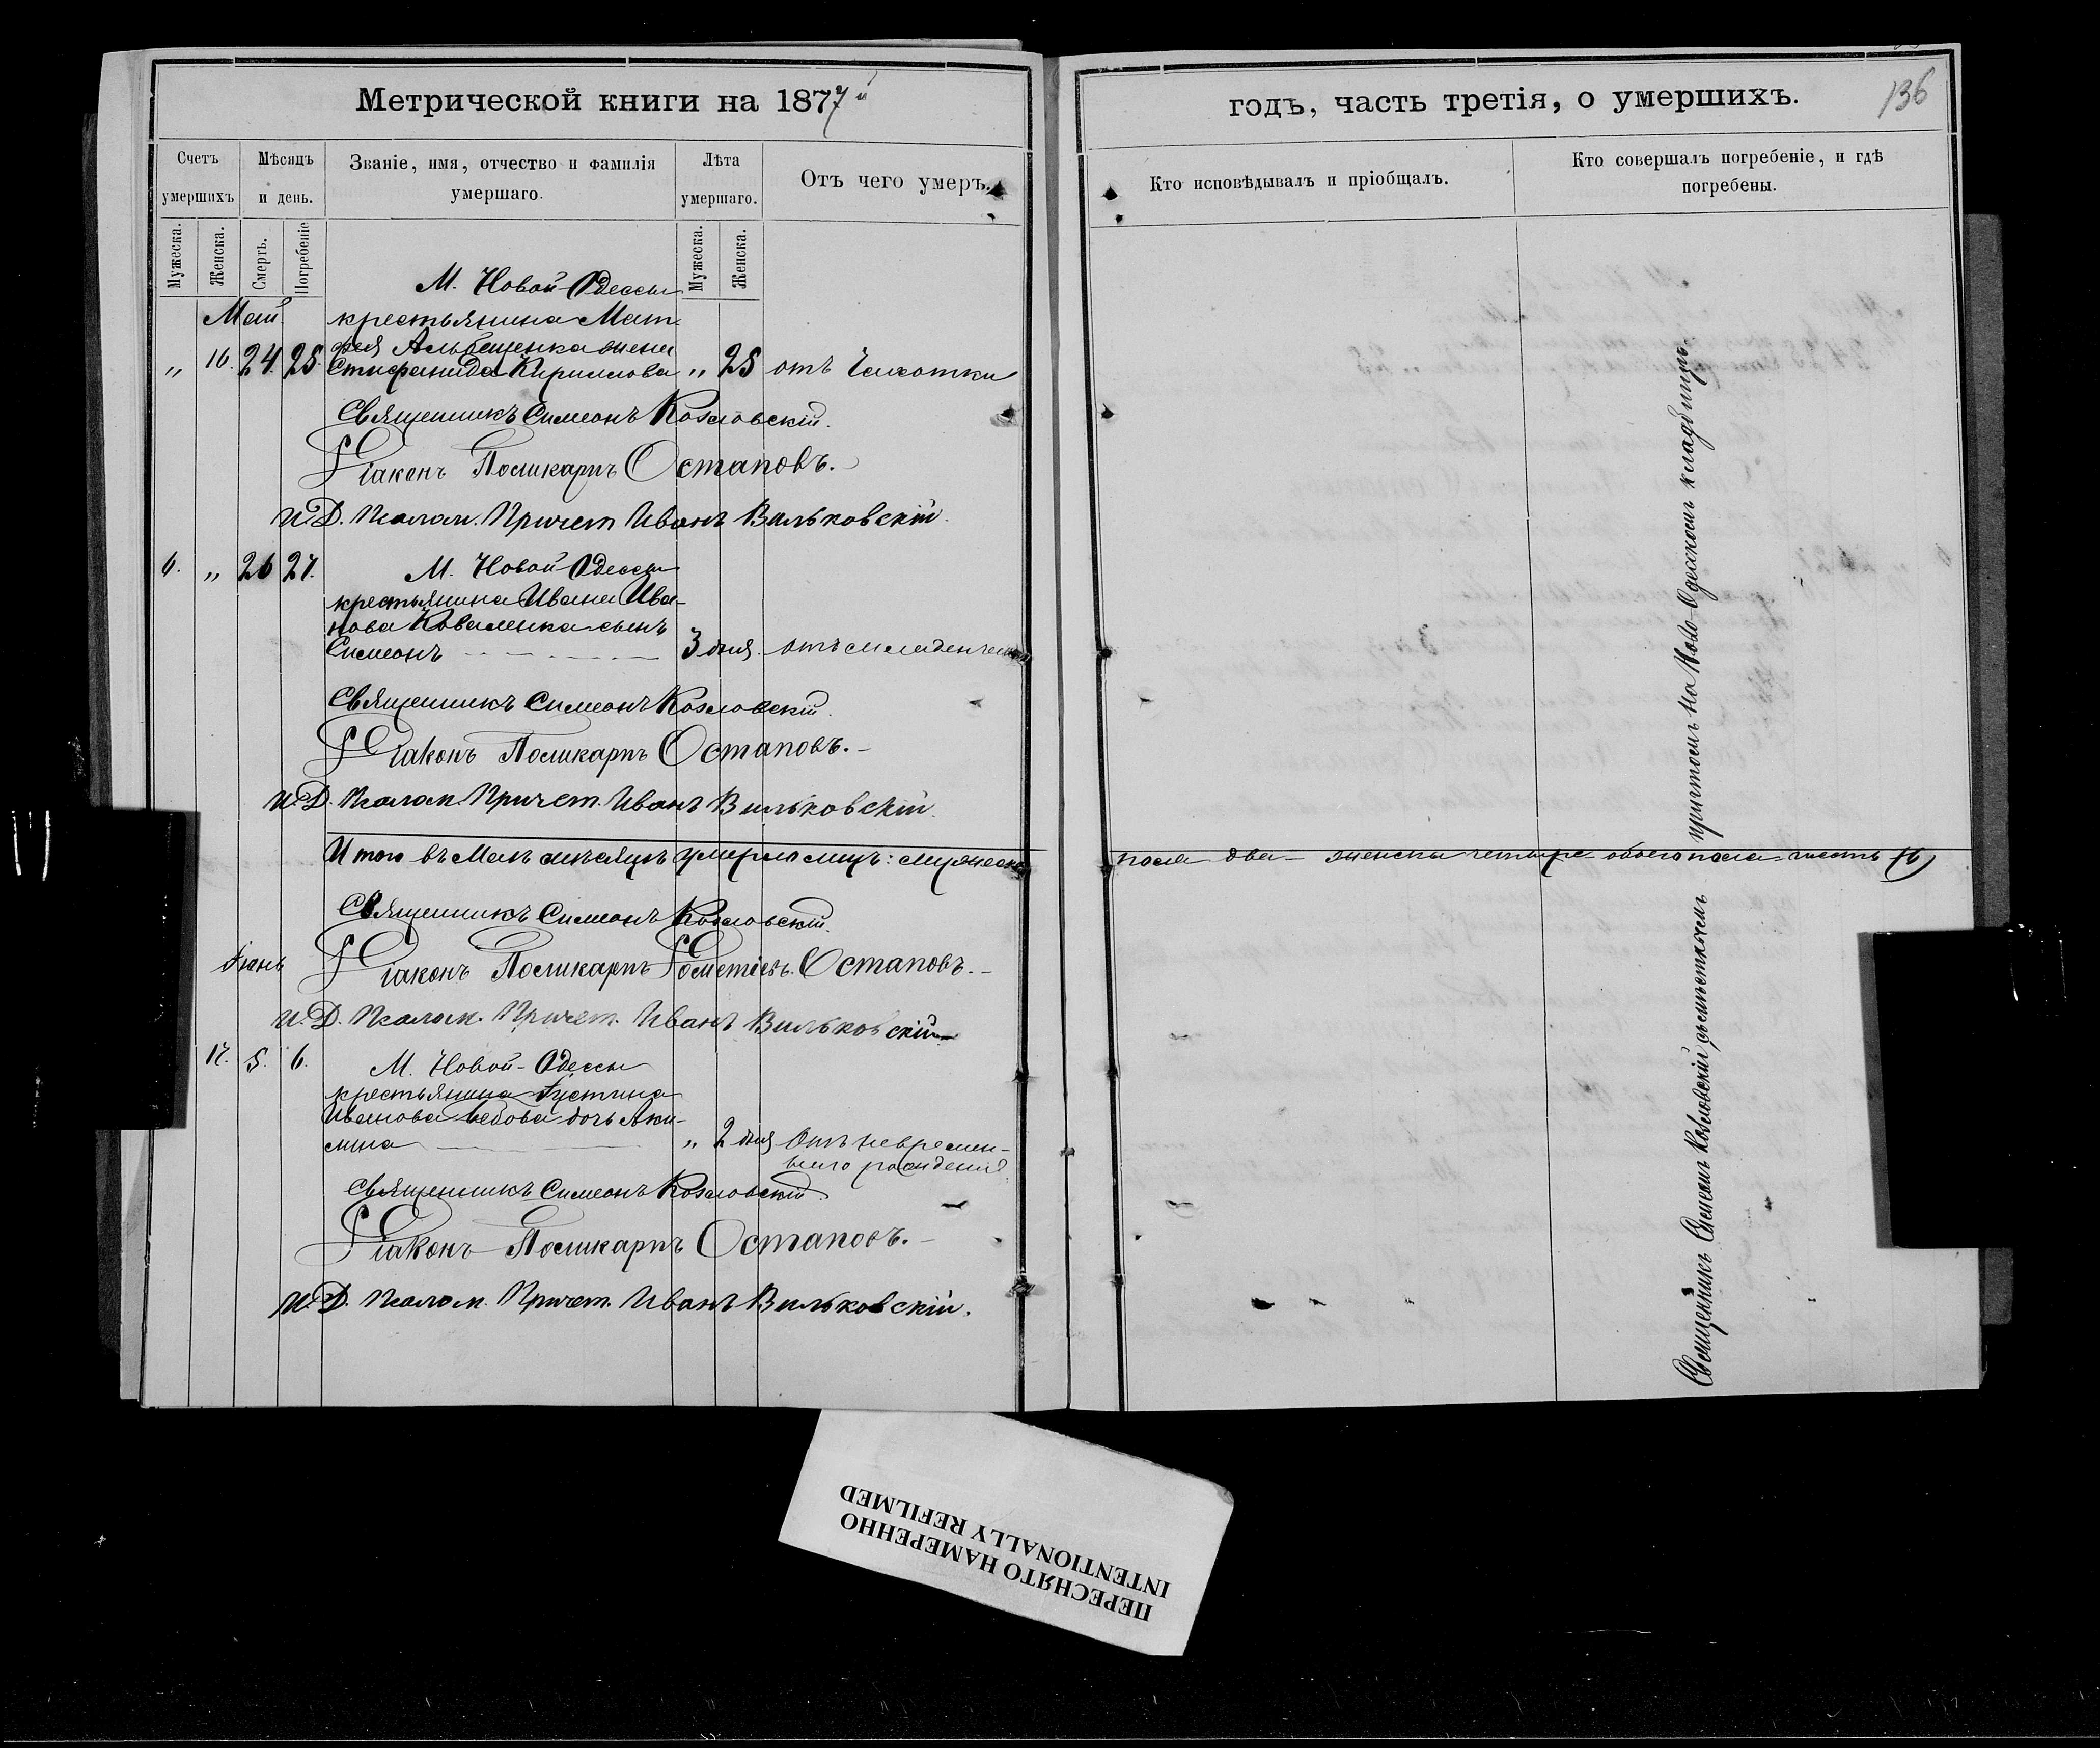 Метрической книги на 1877й
Счетъ умершихъ
Мѣсяцъ и день.
Званіе, имя, отчество и фамилія умершаго.
Лѣта умершаго.
Отъ чего умеръ.
Мужеска.
Женска.
Смерть.
Погребеніе
Мужеска.
Женска.
М. Новой-Одессы
Май.
крестьянина Мат-
фея жена
„ 16. 24. 25. Стефанида Кириллова „ 25 отъ чахотки
Священникъ Симеонъ Козловскій.
Діаконъ Поликарпъ Остаповъ.
И. Д. Псалом. Причет. Иванъ Вильковскій.
6. „ 26 27. М. Новой Одессы
крестьянина Ивана Ива-
нова Коваленка сынъ
Симеонъ 3 дня. отъ младенческой
Священникъ Симеонъ Козловскій.
Діаконъ Поликарпъ Остаповъ.
И. Д. Псалом. Причет. Иванъ Вильковскій.
Итого въ Маѣ мѣсяцѣ умерло лицъ: мужеска
Священникъ Симеонъ Козловскій.
Іюнь
Діаконъ Поликарпъ Остаповъ.
И. Д. Псалом. Причет. Иванъ Вильковскій
17. 5. 6. М. Новой-Одессы
крестьянина Іустина
Иванова дочь Аки-
лина „ 2 дня Отъ невремен-
наго рожденія
Священникъ Симеонъ Козловскій.
Діаконъ Поликарпъ Остаповъ.
И. Д. Псалом. Причет. Иванъ Вильковскій.
годъ, часть третія, о умершихъ.
136
Кто исповѣдывалъ и пріобщалъ.
Кто совершалъ погребеніе, и гдѣ погребены.
пола два женска четыре обоего пола шесть (6)
Священникъ Симеонъ Козловскій съ причтомъ на Ново-Одесскомъ кладбищѣ.
ПЕРЕСНЯТО НАМЕРЕННО
INTENTIONALLY REFILMED